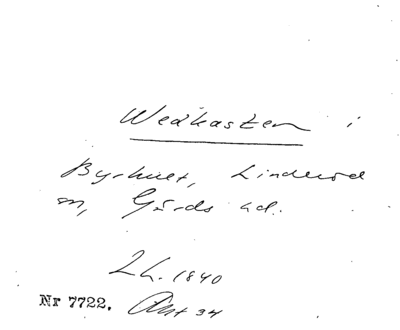 Wedkasten i
Byrhult, Linderöd
sn, Gärds hd.
2 L. 1840
Nr 7722. Ant 34